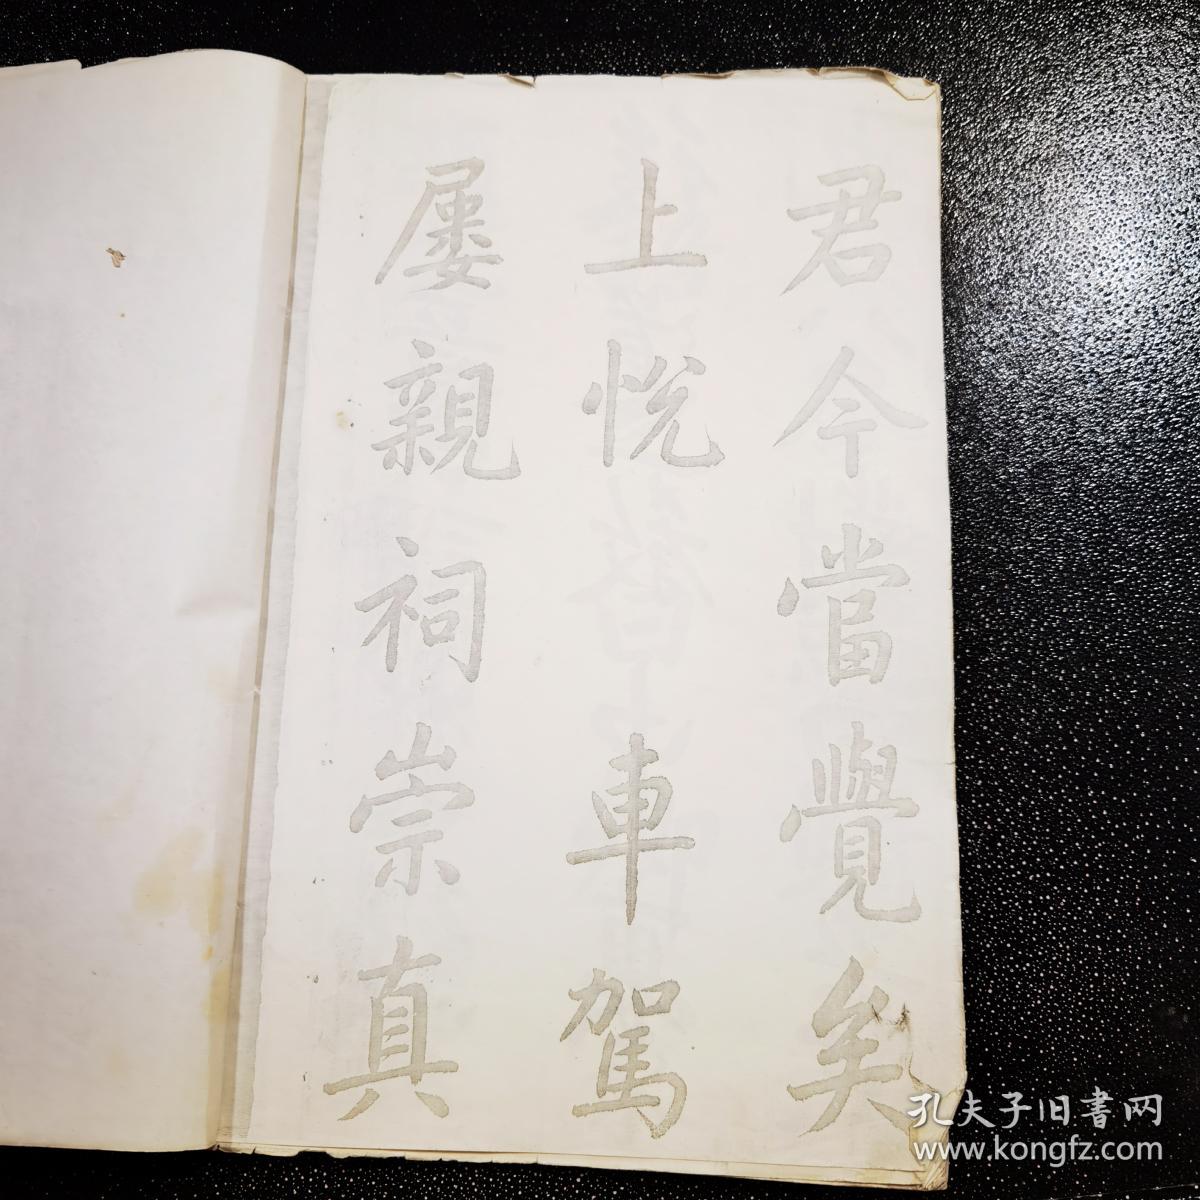 君今當覺矣
上悅 車駕
屡親祠崇真
孔夫子旧書网
www.kongfz.com